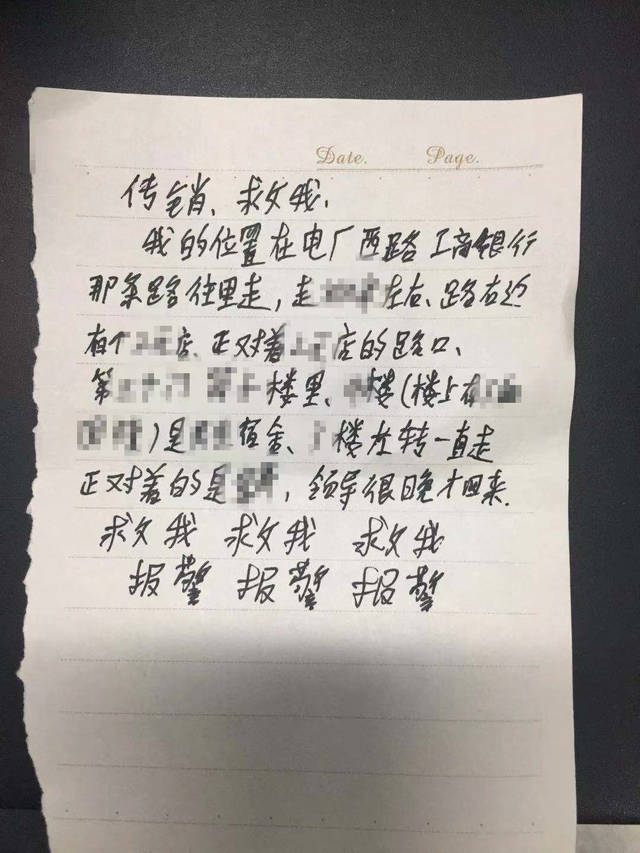 Date. Page.
传销、救我.
我的位置在电厂西路工商银行
那条路往里走，走左右、路右边
有个店、正对着店的路口、
第楼里、楼(楼上有
)是宿舍、楼左转一直走
正对着的是，领导很晚才回来.
救我 救我 救我
报警 报警 报警